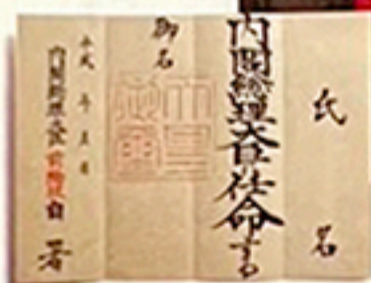 氏名
内閣総理大臣に任命する
御名
平成 年 月 日
内閣総理大臣 自署